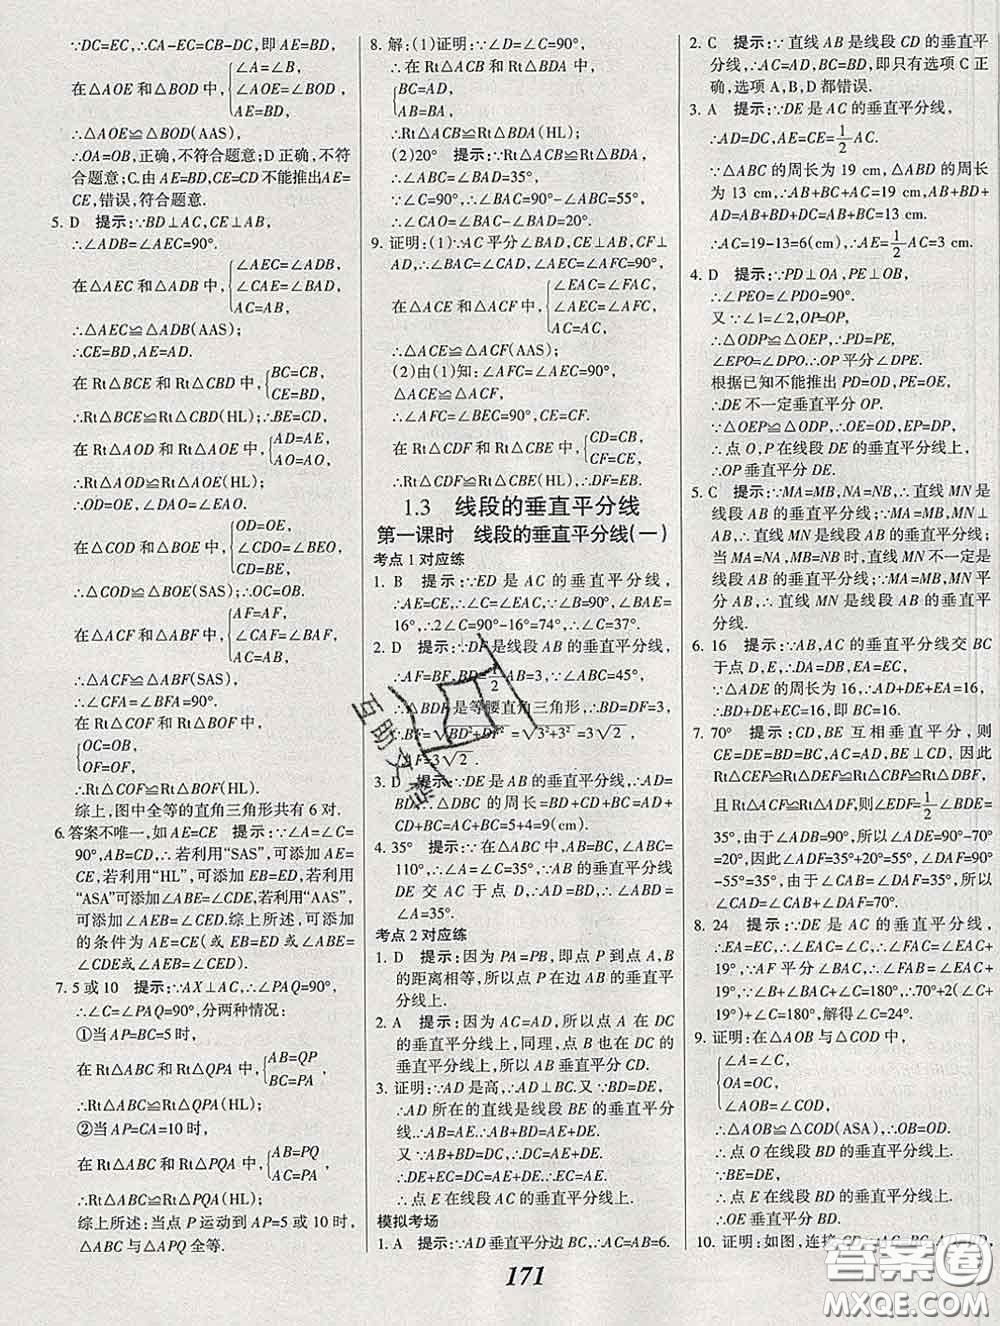 ∵DC=EC,∴CA-EC=CB-DC,即AE=BD,
在△AOE和△BOD中,{∠A=∠B,
∠AOE=∠BOE,
AE=BD,
∴△AOE≌△BOD(AAS);
∴OA=OB,正确,不符合题意;D正确,不符
合题意;C.由AE=BD,CE=CD不能推出AE=
CE,错误,符合题意.
5. D 提示:∵BD⊥AC,CE⊥AB,
∴∠ADB=∠AEC=90°.
在△AEC和△ADB中,{∠AEC=∠ADB,
∠CAE=∠BAD,
AC=AB,
∴△AEC≌△ADB(AAS);
∴CE=BD,AE=AD.
在Rt△BCE和Rt△CBD中,{BC=CB,
CE=BD,
∴Rt△BCE≌Rt△CBD(HL);∴BE=CD,
在Rt△AOD和Rt△AOE中,{AD=AE,
AO=AO,
∴Rt△AOD≌Rt△AOE(HL);
∴OD=OE,∠DAO=∠EAO.
在△COD和△BOE中,{∠ODC=∠OEB,
∠CDO=∠BEO,
OD=OE,
∴△COD≌△BOE(AAS);∴OC=OB.
在△ACF和△ABF中,{AF=AF,
∠CAF=∠BAF,
AC=AB,
∴△ACF≌△ABF(SAS);
∴∠CFA=∠BFA=90°.
在Rt△COF和Rt△BOF中,
{OC=OB,
OF=OF,
∴Rt△COF≌Rt△BOF(HL).
综上,图中全等的直角三角形共有6对.
6.答案不唯一,如AE=CE 提示:∵∠A=∠C=
90°,AB=CD,∴若利用“SAS”,可添加AE=
CE;若利用“HL”,可添加EB=ED,若利用
“ASA”可添加∠ABE=∠CDE,若利用“AAS”可
可添加∠AEB=∠CED.综上所述,可添加
的条件为AE=CE(或EB=ED或∠ABE=
∠CDE或∠AEB=∠CED).
7. 5或10 提示:∵AX⊥AC,∴∠PAQ=90°,
∴∠C=∠PAQ=90°,分两种情况:
①当AP=BC=5时,
在Rt△ABC和Rt△QPA中,{AB=QP
BC=PA,
∴Rt△ABC≌Rt△QPA(HL);
②当AP=CA=10时,
在Rt△ABC和Rt△PQA中,{AB=PQ
AC=PA,
∴Rt△ABC≌Rt△PQA(HL);
综上所述:当点P运动到AP=5或10时,
△ABC与△APQ全等.
8. 解:(1)证明:∵∠D=∠C=90°,
∴在Rt△ACB和Rt△BDA中,
{BC=AD,
AB=BA,
∴Rt△ACB≌Rt△BDA(HL);
(2)20° 提示:∵Rt△ACB≌Rt△BDA,
∴∠ABC=∠BAD=35°,
∵∠C=90°,∴∠BAC=90°-∠ABC=55°,
∴∠CAO=∠BAC-∠BAD=20°.
9. 证明:(1)∵AC平分∠BAD,CE⊥AB,CF⊥
AD,∴∠BAC=∠CAD,∠AEC=∠CFA=90°,
在△ACE和△ACF中,{∠EAC=∠FAC,
∠AEC=∠AFC,
AC=AC,
∴△ACE≌△ACF(AAS);
(2)由(1)知:∠AFC=∠AEC=90°,
△ACE≌△ACF,
∴∠AFC=∠BEC=90°,CE=CF.
在Rt△CDF和Rt△CBE中,{CD=CB,
CF=CE.
∴Rt△CDF≌Rt△CBE(HL).∴DF=EB.
1.3 线段的垂直平分线
第一课时 线段的垂直平分线(一)
考点1对应练
1. B 提示:∵ED是AC的垂直平分线,
∴AE=CE,∴∠C=∠EAC,∵∠B=90°,∠BAE=
16°,∴2∠C=90°-16°=74°,∴∠C=37°.
2. D 提示:∵DF是线段AB的垂直平分线,
∴AF=BF,BD=1/2AB=3;∵∠ABC=45°,
∴△BDF是等腰直角三角形,∴BD=DF=3,
∴BF=√(BD²+DF²)=√(3²+3²)=3√2,
∴AF=3√2.
3. D 提示:∵DE是AB的垂直平分线,∴AD=
BD,∴△DBC的周长=BD+BC+CD=AD+
BC+CD=AC+BC=5+4=9(cm).
4. 35° 提示:∵在△ABC中,AB=BC,∠ABC=
110°,∴∠A=∠C=35°,∵AB的垂直平分线
DE交AC于点D,∴AD=BD,∴∠ABD=
∠A=35°.
考点2对应练
1. D 提示:因为PA=PB,即点P到点A,B
的距离相等,所以点P在边AB的垂直平
分线上.
2. A 提示:因为AC=AD,所以点A在DC
的垂直平分线上,同理,点B也在DC的垂
直平分线上,所以AB垂直平分CD.
3. 证明:∵AD是高,∴AD⊥BC.又∵BD=DE,
∴AD所在的直线是线段BE的垂直平分
线.∴AB=AE.∴AB+BD=AE+DE.
又∵AB+BD=DC,∴DC=AE+DE.
∴DE+EC=AE+DE.∴EC=AE.
∴点E在线段AC的垂直平分线上.
模拟考场
1. A 提示:∵AD垂直平分边BC,∴AC=AB=6.
2. C 提示:∵直线AB是线段CD的垂直平
分线,∴AC=AD,BC=BD,即只有选项C正
确,选项A,B,D都错误.
3. A 提示:∵DE是AC的垂直平分线,
∴AD=DC,AE=CE=1/2AC.
∵△ABC的周长为19 cm,△ABD的周长
为13 cm,∴AB+BC+AC=19 cm,AB+BD+
AD=AB+BD+DC=AB+BC=13 cm.
∴AC=19-13=6(cm),∴AE=1/2AC=3 cm.
4. D 提示:∵PD⊥OA,PE⊥OB,
∴∠PEO=∠PDO=90°.
又∵∠1=∠2,OP=OP,
∴△ODP≌△OEP,∴PD=PE,
∠EPO=∠DPO.∴OP平分∠DPE.
根据已知不能推出PD=OD,PE=OE,
∴DE不一定垂直平分OP.
∵△OEP≌△ODP,∴OE=OD,EP=DP,
∴点O,P在线段DE的垂直平分线上.
∴OP垂直平分DE.
5. C 提示:∵MA=MB,NA=NB,∴直线MN是
线段AB的垂直平分线;
当MA=NA,MB=NB时,直线MN不一定是
线段AB的垂直平分线;∵MA=MB,MN平
分AB,∴直线MN是线段AB的垂直平
分线.
6. 16 提示:∵AB,AC的垂直平分线交BC
于点D,E,∴DA=DB,EA=EC,
∵△ADE的周长为16,∴AD+DE+EA=16,
∴BD+DE+EC=16,即BC=16.
7. 70° 提示:CD,BE互相垂直平分,则
CE=DE=BD=BC=AD,BE⊥CD,因此
Rt△CEF≌Rt△DEF≌Rt△CBF≌Rt△DBF,
且Rt△AMD≌Rt△FMD,则∠DEF=1/2∠BDE=
35°,由于∠ADB=90°,所以∠ADE=90°-70°
=20°,因此∠ADF=35°+20°=55°,∠DAF=90°
-55°=35°,由于∠CAB=∠DAF=35°,所以
∠CAD=∠CAB+∠DAF=70°.
8. 24 提示:∵DE是AC的垂直平分线,
∴EA=EC,∴∠EAC=∠C,∴∠FAC=∠EAC+
19°,∵AF平分∠BAC,∴∠FAB=∠EAC+
19°;∵∠B+∠BAC+∠C=180°,∴70°+2(∠C+
19°)+∠C=180°,解得∠C=24°.
9. 证明:在△AOB与△COD中,
{∠A=∠C,
OA=OC,
∠AOB=∠COD,
∴△AOB≌△COD(ASA),∴OB=OD.
∴点O在线段BD的垂直平分线上.
∵BE=DE,
∴点E在线段BD的垂直平分线上.
∴OE垂直平分BD.
10. 证明:如图,连接
171
互助文档
答案圈
MXQE.COM